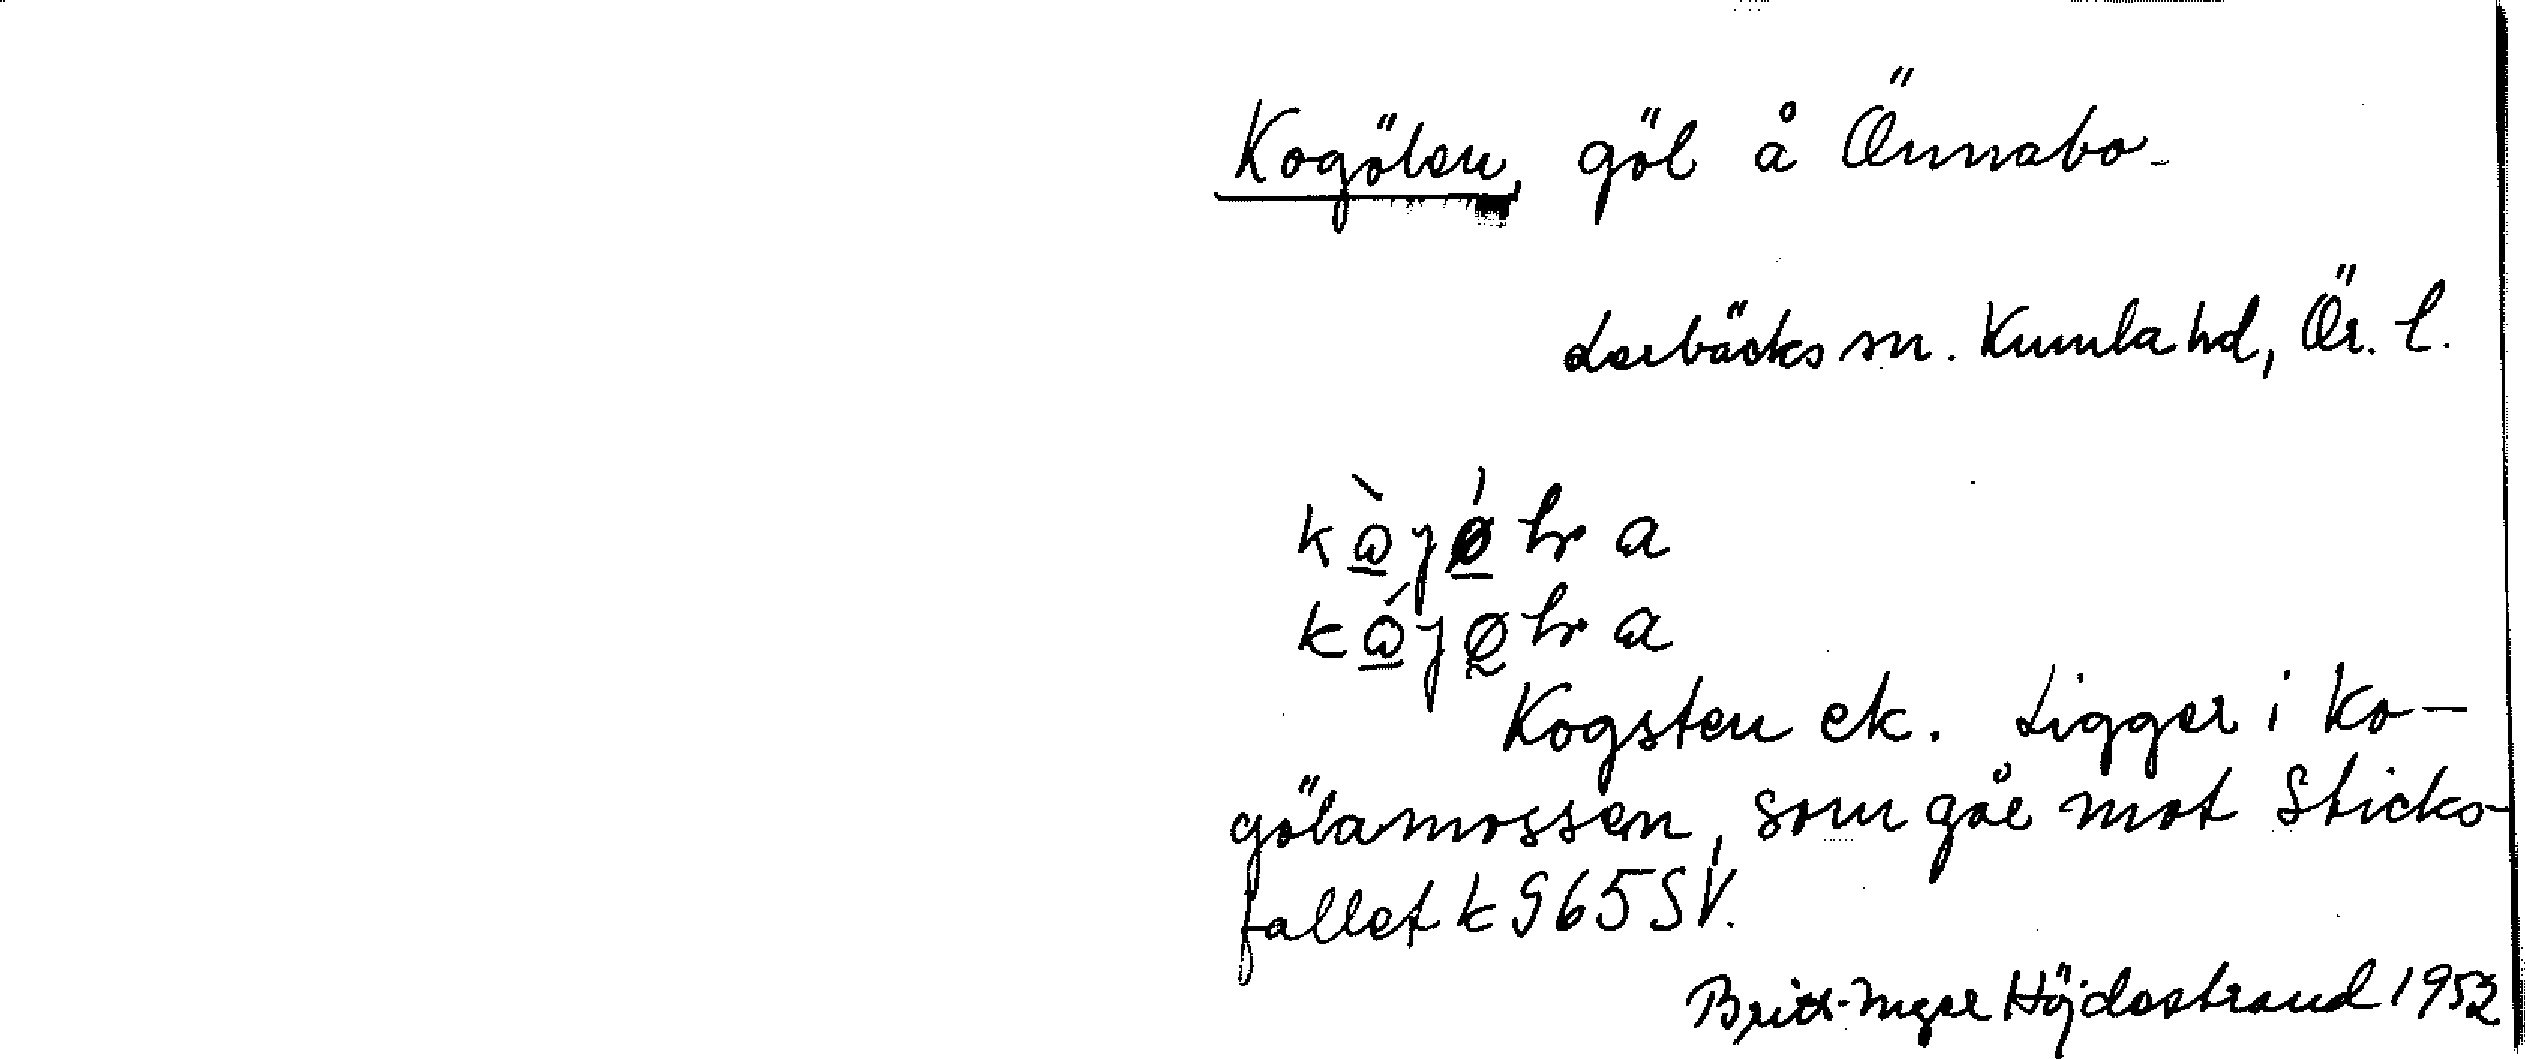 Kogölen, göl å Önnabo-
Lerbäcks sn. Kumla hd, Ör. l.
Kogsten ek. Ligger i Ko-
gölamossen, som går mot Sticks-
fallet k 965 SV.
Britt-Inger Höjdestrand 1952